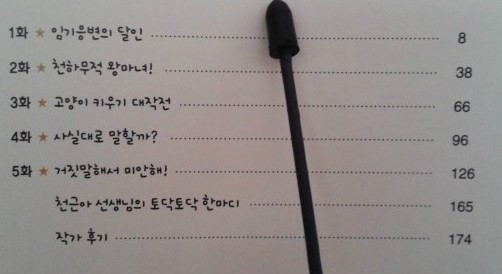 1화 ★ 임기응변의 달인 8
2화 ★ 천하무적 왕마녀! 38
3화 ★ 고양이 키우기 대작전 66
4화 ★ 사실대로 말할까? 96
5화 ★ 거짓말해서 미안해! 126
천근아 선생님의 토닥토닥 한마디 165
작가 후기 174